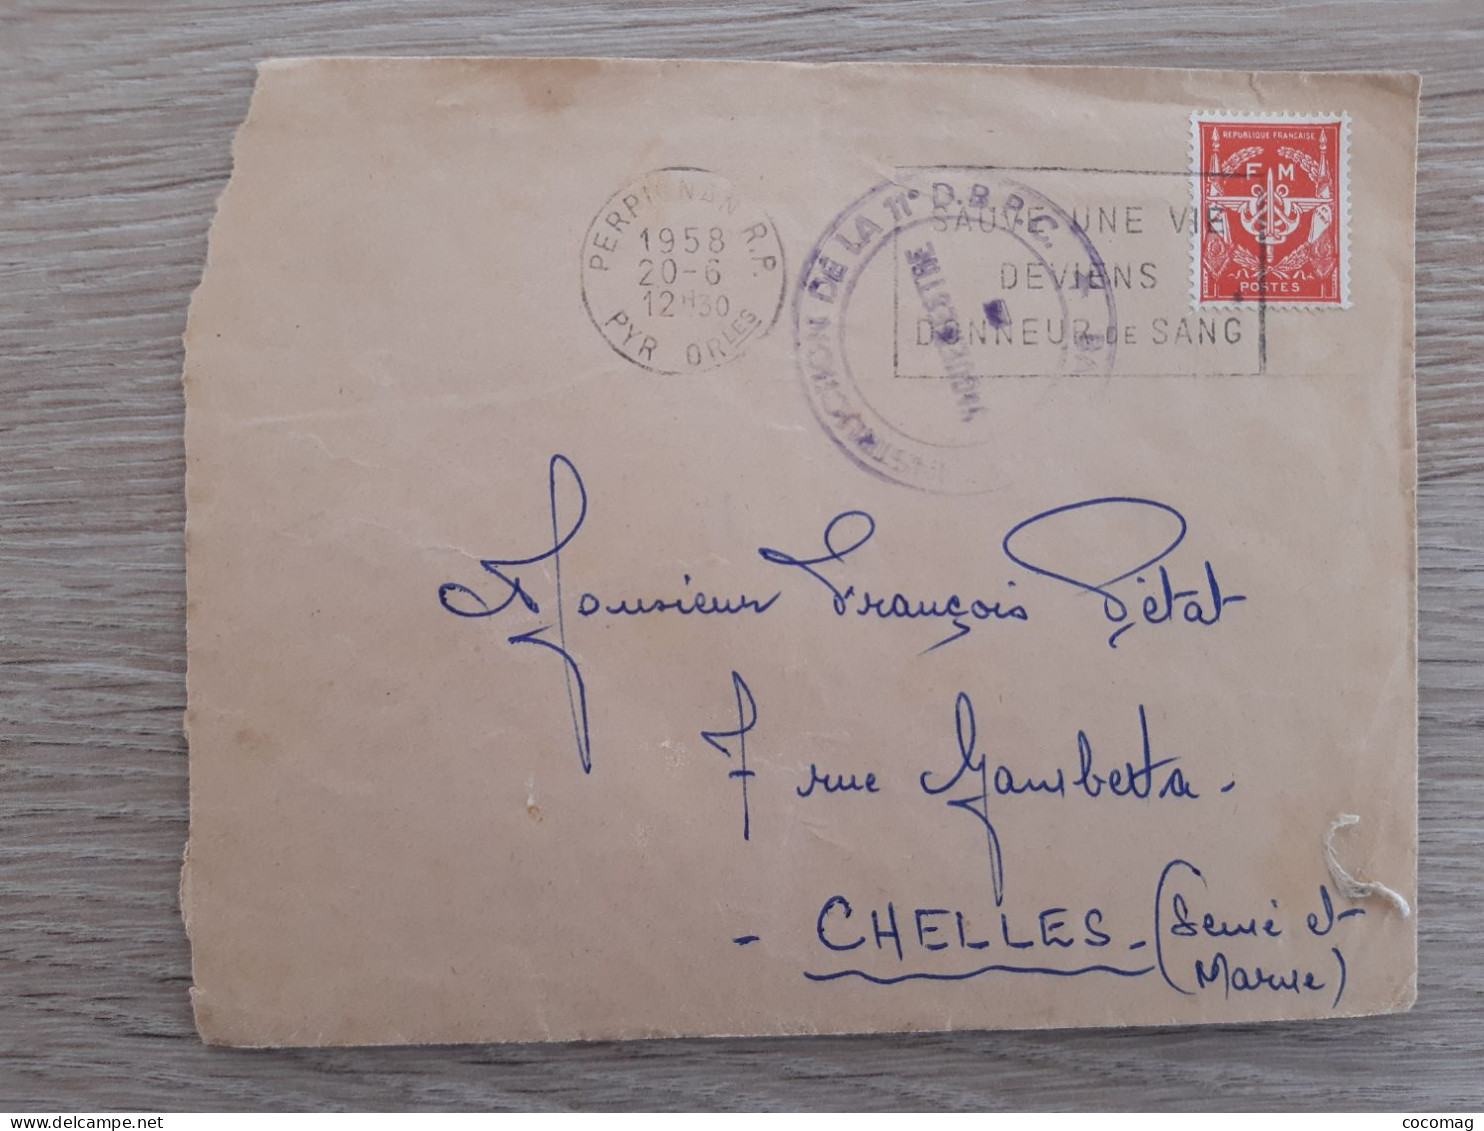 REPUBLIQUE FRANCAISE
F M
POSTES
PERPIGNAN R.P.
1958
20-6
12H30
PYR ORLES
SAUVE UNE VIE
DEVIENS
DONNEUR DE SANG
INSTRUCTION DE LA 11e D.B.P.C.
Monsieur François Pétat
7 rue Gambetta.
- CHELLES - (Seine et
Marne)
cocomag